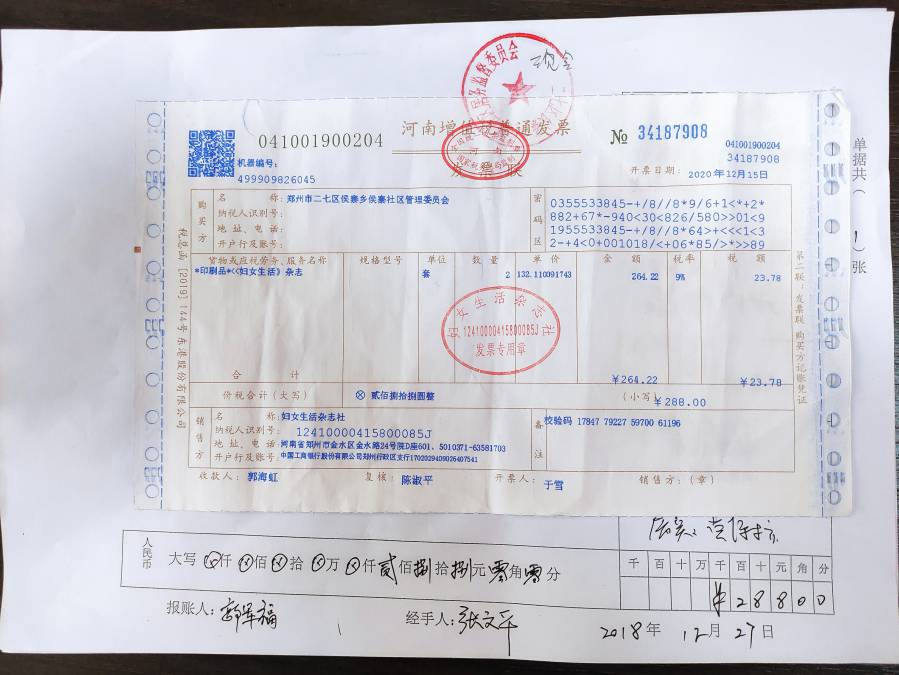 现金
监督委员会
041001900204
河南增值税普通发票
№ 34187908
041001900204
34187908
机器编号:
499909826045
发票联
开票日期: 2020年12月15日
单据共( 1 )张
购买方
名 称: 郑州市二七区侯寨乡侯寨社区管理委员会
纳税人识别号:
地 址、电 话:
开户行及账号:
密码区
0355533845-+/8//8*9/6+1<*+2*
882+67*-940<30<826/580>>01<9
1955533845-+/8//8*64>+<<<1<3
2-+4<0+001018/<+06*85/>*>>89
货物或应税劳务、服务名称 规格型号 单位 数 量 单 价 金 额 税率 税 额
*印刷品*<<妇女生活》杂志 套 2 132.110091743 264.22 9% 23.78
妇女生活杂志社
12410000415800085J
发票专用章
合 计 ￥264.22 ￥23.78
价税合计(大写) ⊗ 贰佰捌拾捌圆整 (小写) ￥288.00
销售方
名 称: 妇女生活杂志社
纳税人识别号: 12410000415800085J
地 址、电 话: 河南省郑州市金水区金水路24号院D座601、5010371-63581703
开户行及账号: 中国工商银行股份有限公司郑州行政区支行1702029409026407541
备注
校验码 17847 79227 59700 61196
收款人: 郭海虹 复核: 陈淑平 开票人: 于雪 销售方:(章)
税总函[2019]144号东港股份有限公司
第二联:发票联 购买方记账凭证
人民币
大写 ⊗仟⊗佰⊗拾⊗万⊗仟贰佰捌拾捌元零角零分
千 百 十 万 千 百 十 元 角 分
¥ 2 8 8 0 0
报账人: 郭军福
经手人: 张文平
2018年 12月 27日